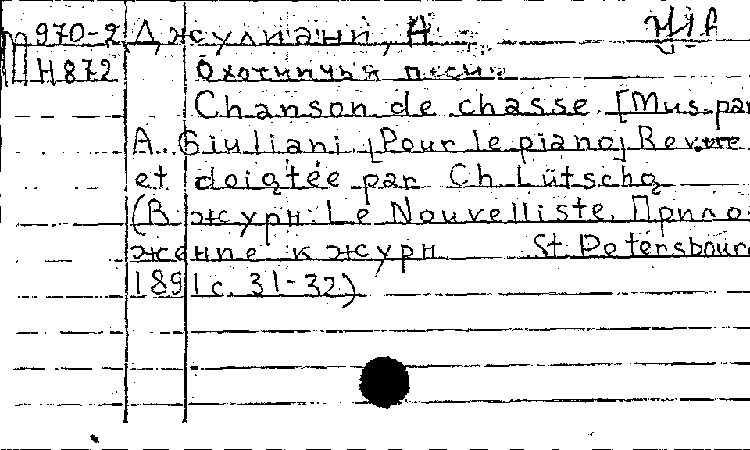 П 970-2 Джулиани, А.
Н872 Охотничья песня
Chanson de chasse. [Mus. par
A. Giuliani. [Pour le piano] Revue
et doigtée par Ch. Lütschg
(В журн: Le Nouvelliste. Прило-
жение к журн St. Petersbourg
1891 с. 31-32)